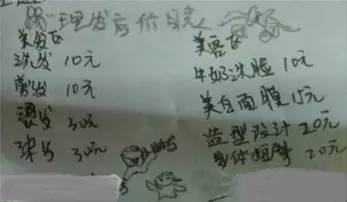 理发店价目表
美发区
洗发 10元
剪发 10元
烫发 50元
染发 50元
美容区
牛奶洗脸 10元
美白面膜 15元
造型设计 20元
身体按摩 20元